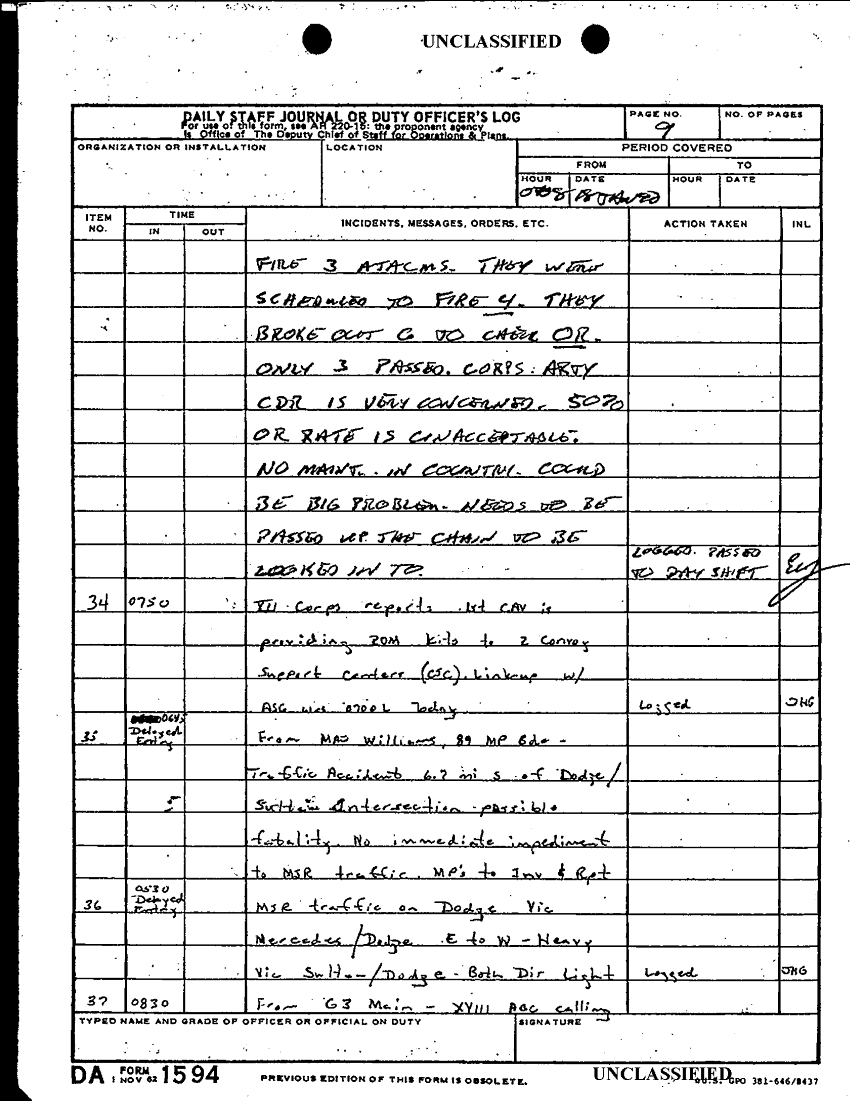 UNCLASSIFIED
DAILY STAFF JOURNAL OR DUTY OFFICER'S LOG
For use of this form, see AR 220-15; the proponent agency
is Office of The Deputy Chief of Staff for Operations & Plans.
PAGE NO.
9
NO. OF PAGES
ORGANIZATION OR INSTALLATION
LOCATION
PERIOD COVERED
FROM
TO
HOUR
DATE
HOUR
DATE
ITEM NO.
TIME
IN
OUT
INCIDENTS, MESSAGES, ORDERS, ETC.
ACTION TAKEN
INL
FIRE 3 ATACMS. THEY WERE
SCHEDULED TO FIRE 4. THEY
BROKE OUT 6 TO CHECK OR.
ONLY 3 PASSED. CORPS ARTY
CDR IS VERY CONCERNED. 50%
OR RATE IS UNACCEPTABLE.
NO MAINT. IN COUNTRY. COULD
BE BIG PROBLEM. NEEDS TO BE
PASSED UP THE CHAIN TO BE
LOOKED IN TO. LOGGED. PASSED TO DAY SHIFT
34 0750 VII Corps reports 1st CAV is
providing ROM kits to 2 Convoy
Support centers (CSC). Linkup w/
ASG was 0700L Today Logged JHG
35 0645 Delayed Entry From MAJ Williams, 89 MP Bde -
Traffic Accident 6.7 mi S of Dodge/
Sultan Intersection possible
fatality. No immediate impediment
to MSR traffic. MP's to Inv & Rpt
36 0530 Delayed Entry MSR traffic on Dodge Vic
Mercedes/Dodge E to W - Heavy
Vic Sultan/Dodge - Both Dir Light Logged JHG
37 0830 From G3 Main - XVIII ABC calling
TYPED NAME AND GRADE OF OFFICER OR OFFICIAL ON DUTY
SIGNATURE
DA FORM 1 NOV 62 1594
PREVIOUS EDITION OF THIS FORM IS OBSOLETE.
UNCLASSIFIED
GPO 381-646/8437